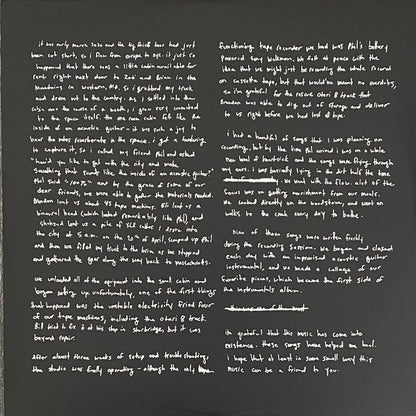 it was early march 2020 and the big thief tour had just
been cut short, so i flew from europe to nyc. it just so
happened that there was a little cabin available for
rent right next door to Zoë and Brian in the
mountains in western, MA. so i grabbed my truck
and drove out to the country. As i settled into the
cabin over the course of a month, i grew very connected
to the space itself. the one room cabin felt like the
inside of an acoustic guitar - it was such a joy to
hear the notes reverberate in the space. i got a hankering
to capture it, so i called my friend Phil and asked
"would you like to get out of the city and make
something that sounds like the inside of an acoustic guitar"
Phil said "100%" and by the grace of some of our
dear friends, we were able to gather the materials needed.
Brandon lent us about 45 tape machines, Eli lent us a
binaural head (which looked remarkably like Phil), and
Shahzad lent us a pile of XLR cables. i drove into
the city at 5 a.m. on the 20th of April, scooped up Phil
and then we filled my truck to the brim as we stopped
and gathered the gear along the way back to massachusetts.
we unloaded all of the equipment into the small cabin and
began setting up. unfortunately, one of the first things
that happened was the unstable electricity fried four
of our tape machines, including the Otari 8 track.
Bill tried to fix it at his shop in sturbridge, but it was
beyond repair.
After almost three weeks of setup and troubleshooting,
the studio was finally operating - although the only
functioning tape recorder we had was Phil's battery
powered Sony Walkman. We felt at peace with the
idea that we might just be recording the whole record
on cassette tape, but that would've meant no overdubs,
so i'm grateful for the rescue Otari 8 track that
Brandon was able to dig out of storage and deliver
to us right before we had lost all hope.
i had a handful of songs that i was planning on
recording, but by the time Phil arrived i was on a whole
new level of heartsick and the songs were flying through
my ears. i was basically lying in the dirt half the time.
we went with the flow. alot of the
focus was on getting nourishment from our meals.
We cooked directly on the woodstove, and went on
walks to the creek every day to bathe.
Nine of these songs were written freshly
during the recording session. We began and closed
each day with an improvised acoustic guitar
instrumental, and we made a collage of our
favorite pieces, which became the first side of
the instrumentals album.
im grateful that this music has come into
existence. these songs have helped me heal.
i hope that at least in some small way this
music can be a friend to you.